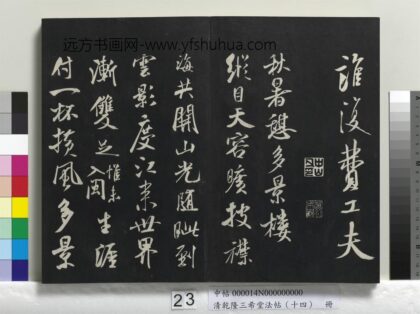 远方书画网-www.yfshuhua.com
誰復費工夫
秋暑憩多景樓
縱目天容曠披襟
海共開山光隨眺到
雲影度江来世界
漸雙足惟未入閩生涯
付一杯横風多景
23
中帖 000014N000000000
清乾隆三希堂法帖(十四) 冊